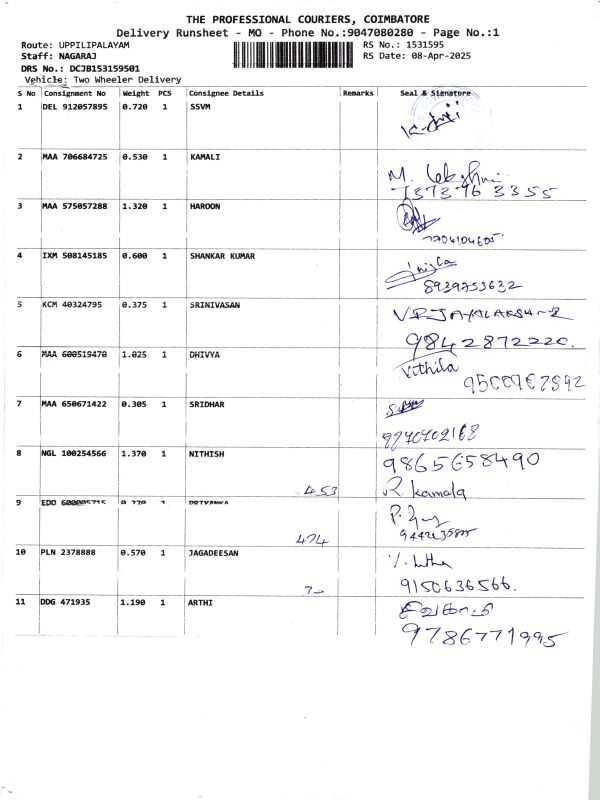 THE PROFESSIONAL COURIERS, COIMBATORE
Delivery Runsheet - MO - Phone No.:9047080280 - Page No.:1
Route: UPPILIPALAYAM
RS No.: 1531595
Staff: NAGARAJ
RS Date: 08-Apr-2025
DRS No.: DCJB153159501
Vehicle: Two Wheeler Delivery
S No Consignment No Weight PCS Consignee Details Remarks Seal & Signature
1 DEL 912057895 0.720 1 SSVM
2 MAA 706684725 0.530 1 KAMALI
M.
737376 3355
3 MAA 575057288 1.320 1 HAROON
4 IXM 508145185 0.600 1 SHANKAR KUMAR
8939753632
5 KCM 40324795 0.375 1 SRINIVASAN
9842872220.
6 MAA 600519470 1.025 1 DHIVYA
Vithila
7 MAA 650671422 0.305 1 SRIDHAR
8 NGL 100254566 1.370 1 NITHISH
9865658490
453 R. kamala
9 EDD 600005715 0.220 1 PRIYANKA
474
10 PLN 2378888 0.570 1 JAGADEESAN
9150636566.
11 DDG 471935 1.190 1 ARTHI
9786771995